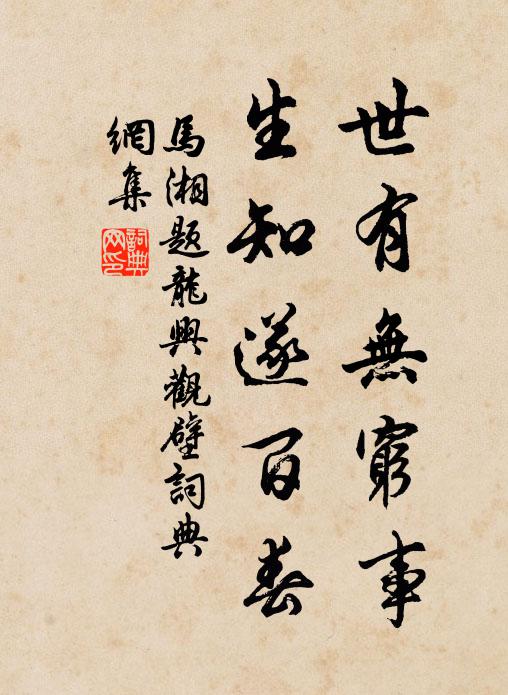 世有無窮事
生知遂百春
馬湘題龍興觀壁詞典
網集
詞典網印